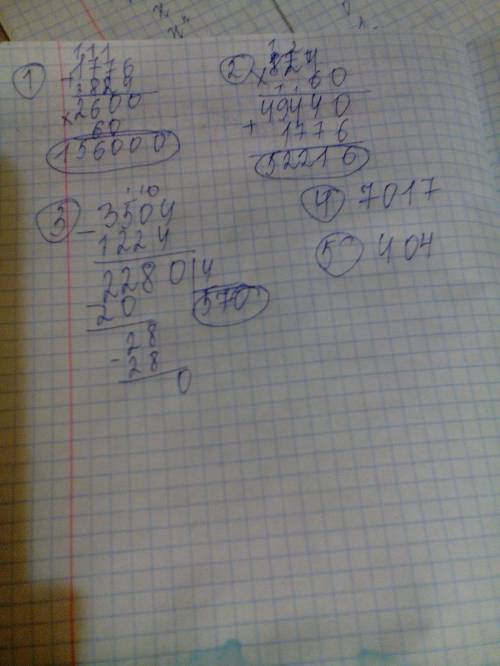 ① 111
1776
+ 824
× 2600
60
156000
② × 824
60
49440
+ 1776
52216
③ - 3504
1224
2280 | 4
- 20 570
- 28
28
0
④ 7017
⑤ 404